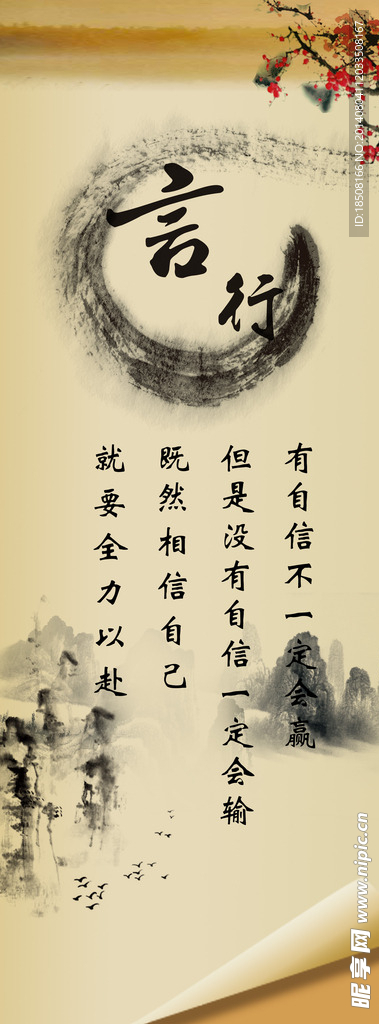 言行
有自信不一定会赢
但是没有自信一定会输
既然相信自己
就要全力以赴
ID:18508166 NO:20140804112033508167
昵享网 www.nipic.cn